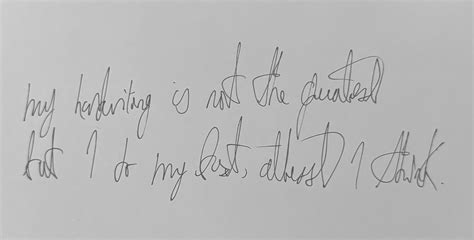 my handwriting is not the greatest
but I do my best, atleast I think.